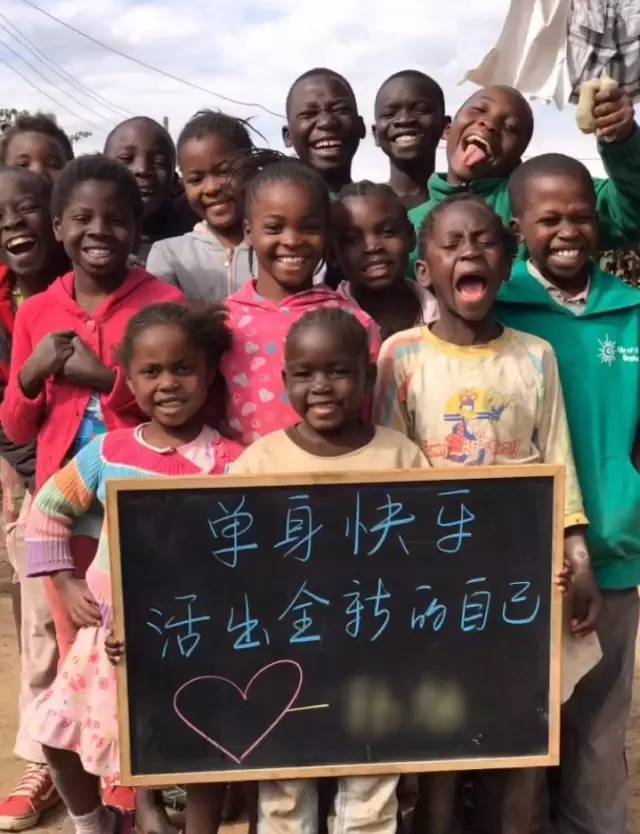 单身快牙
活出全新的自己